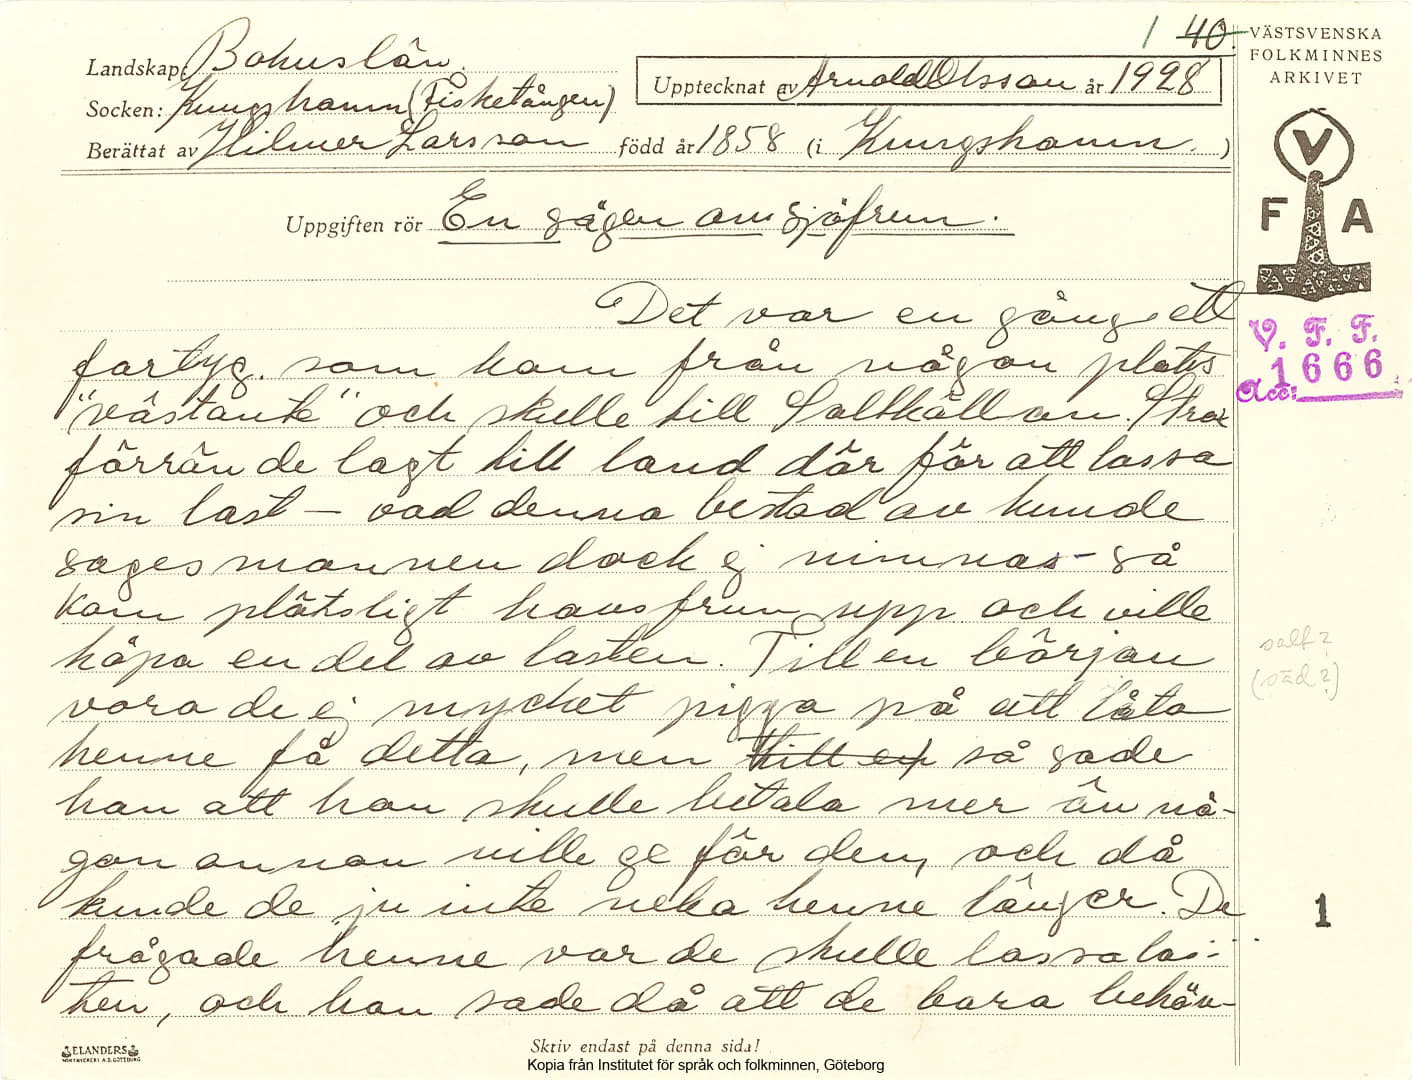 1 40.
VÄSTSVENSKA
FOLKMINNES
ARKIVET
Landskap: Bohuslän.
Upptecknat av Arnold Olsson år 1928
Socken: Kungshamn (Fisketången)
Berättat av Hilmer Larsson född år 1858 (i Kungshamn.)
V
F A
Uppgiften rör En sägen om sjöfrun.
Det var en gång ett
V. F. F.
fartyg, som kom från någon plats
1666
Acc:
"västante" och skulle till Saltkällan. Strax
förrän de lagt till land där för att lassa
sin last – vad denna bestod av kunde
sagesmannen dock ej minnas – så
kom plötsligt havsfrun upp och ville
salt?
köpa en del av lasten. Till en början
(säd?)
voro de ej mycket pigga på att låta
henne få detta, men till en så sade
hon att hon skulle betala mer än nå-
gon annan ville ge för den, och då
kunde de ju inte neka henne länger. De
1
frågade henne var de skulle lossa las-
ten, och hon sade då att de bara behöv-
ELANDERS
Skriv endast på denna sida!
Kopia från Institutet för språk och folkminnen, Göteborg